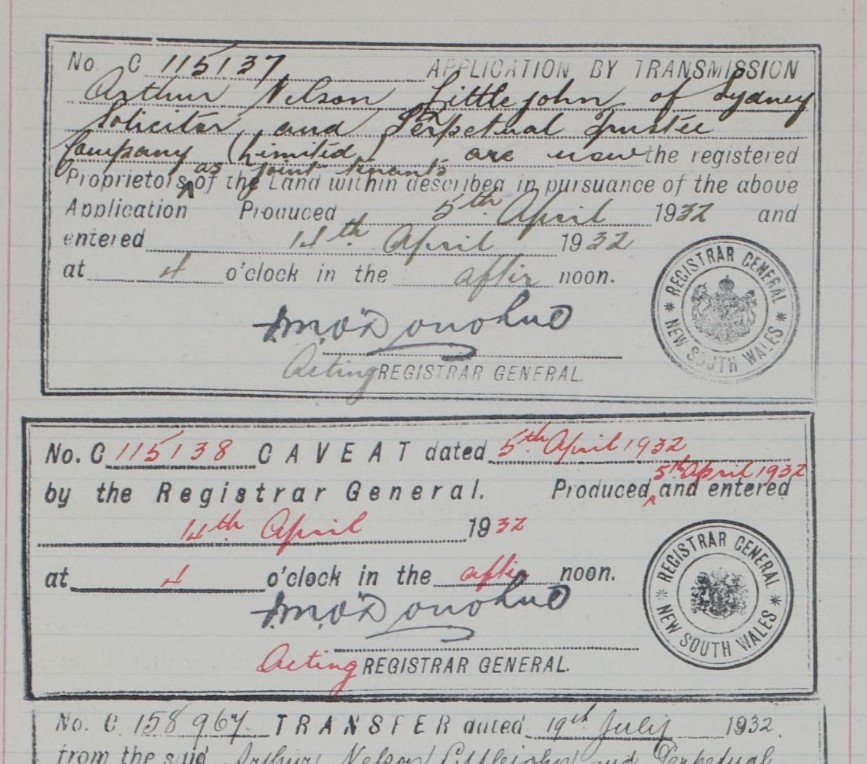 No C 115137 APPLICATION BY TRANSMISSION
Arthur Nelson Littlejohn of Sydney
Solicitor, and Perpetual Trustee
Company (Limited) are now the registered
as joint tenants
Proprietors of the Land within described in pursuance of the above
Application Produced 5th April 1932 and
entered 14th April 1932
at 4 o'clock in the after noon.
Acting REGISTRAR GENERAL.
REGISTRAR GENERAL
NEW SOUTH WALES
No. C 115138 CAVEAT dated 5th April 1932
5th April 1932
by the Registrar General. Produced and entered
14th April 1932
at 4 o'clock in the after noon.
Acting REGISTRAR GENERAL.
REGISTRAR GENERAL
NEW SOUTH WALES
No. C 158967 TRANSFER dated 19th July 1932.
from the said Arthur Nelson Littlejohn and Perpetual